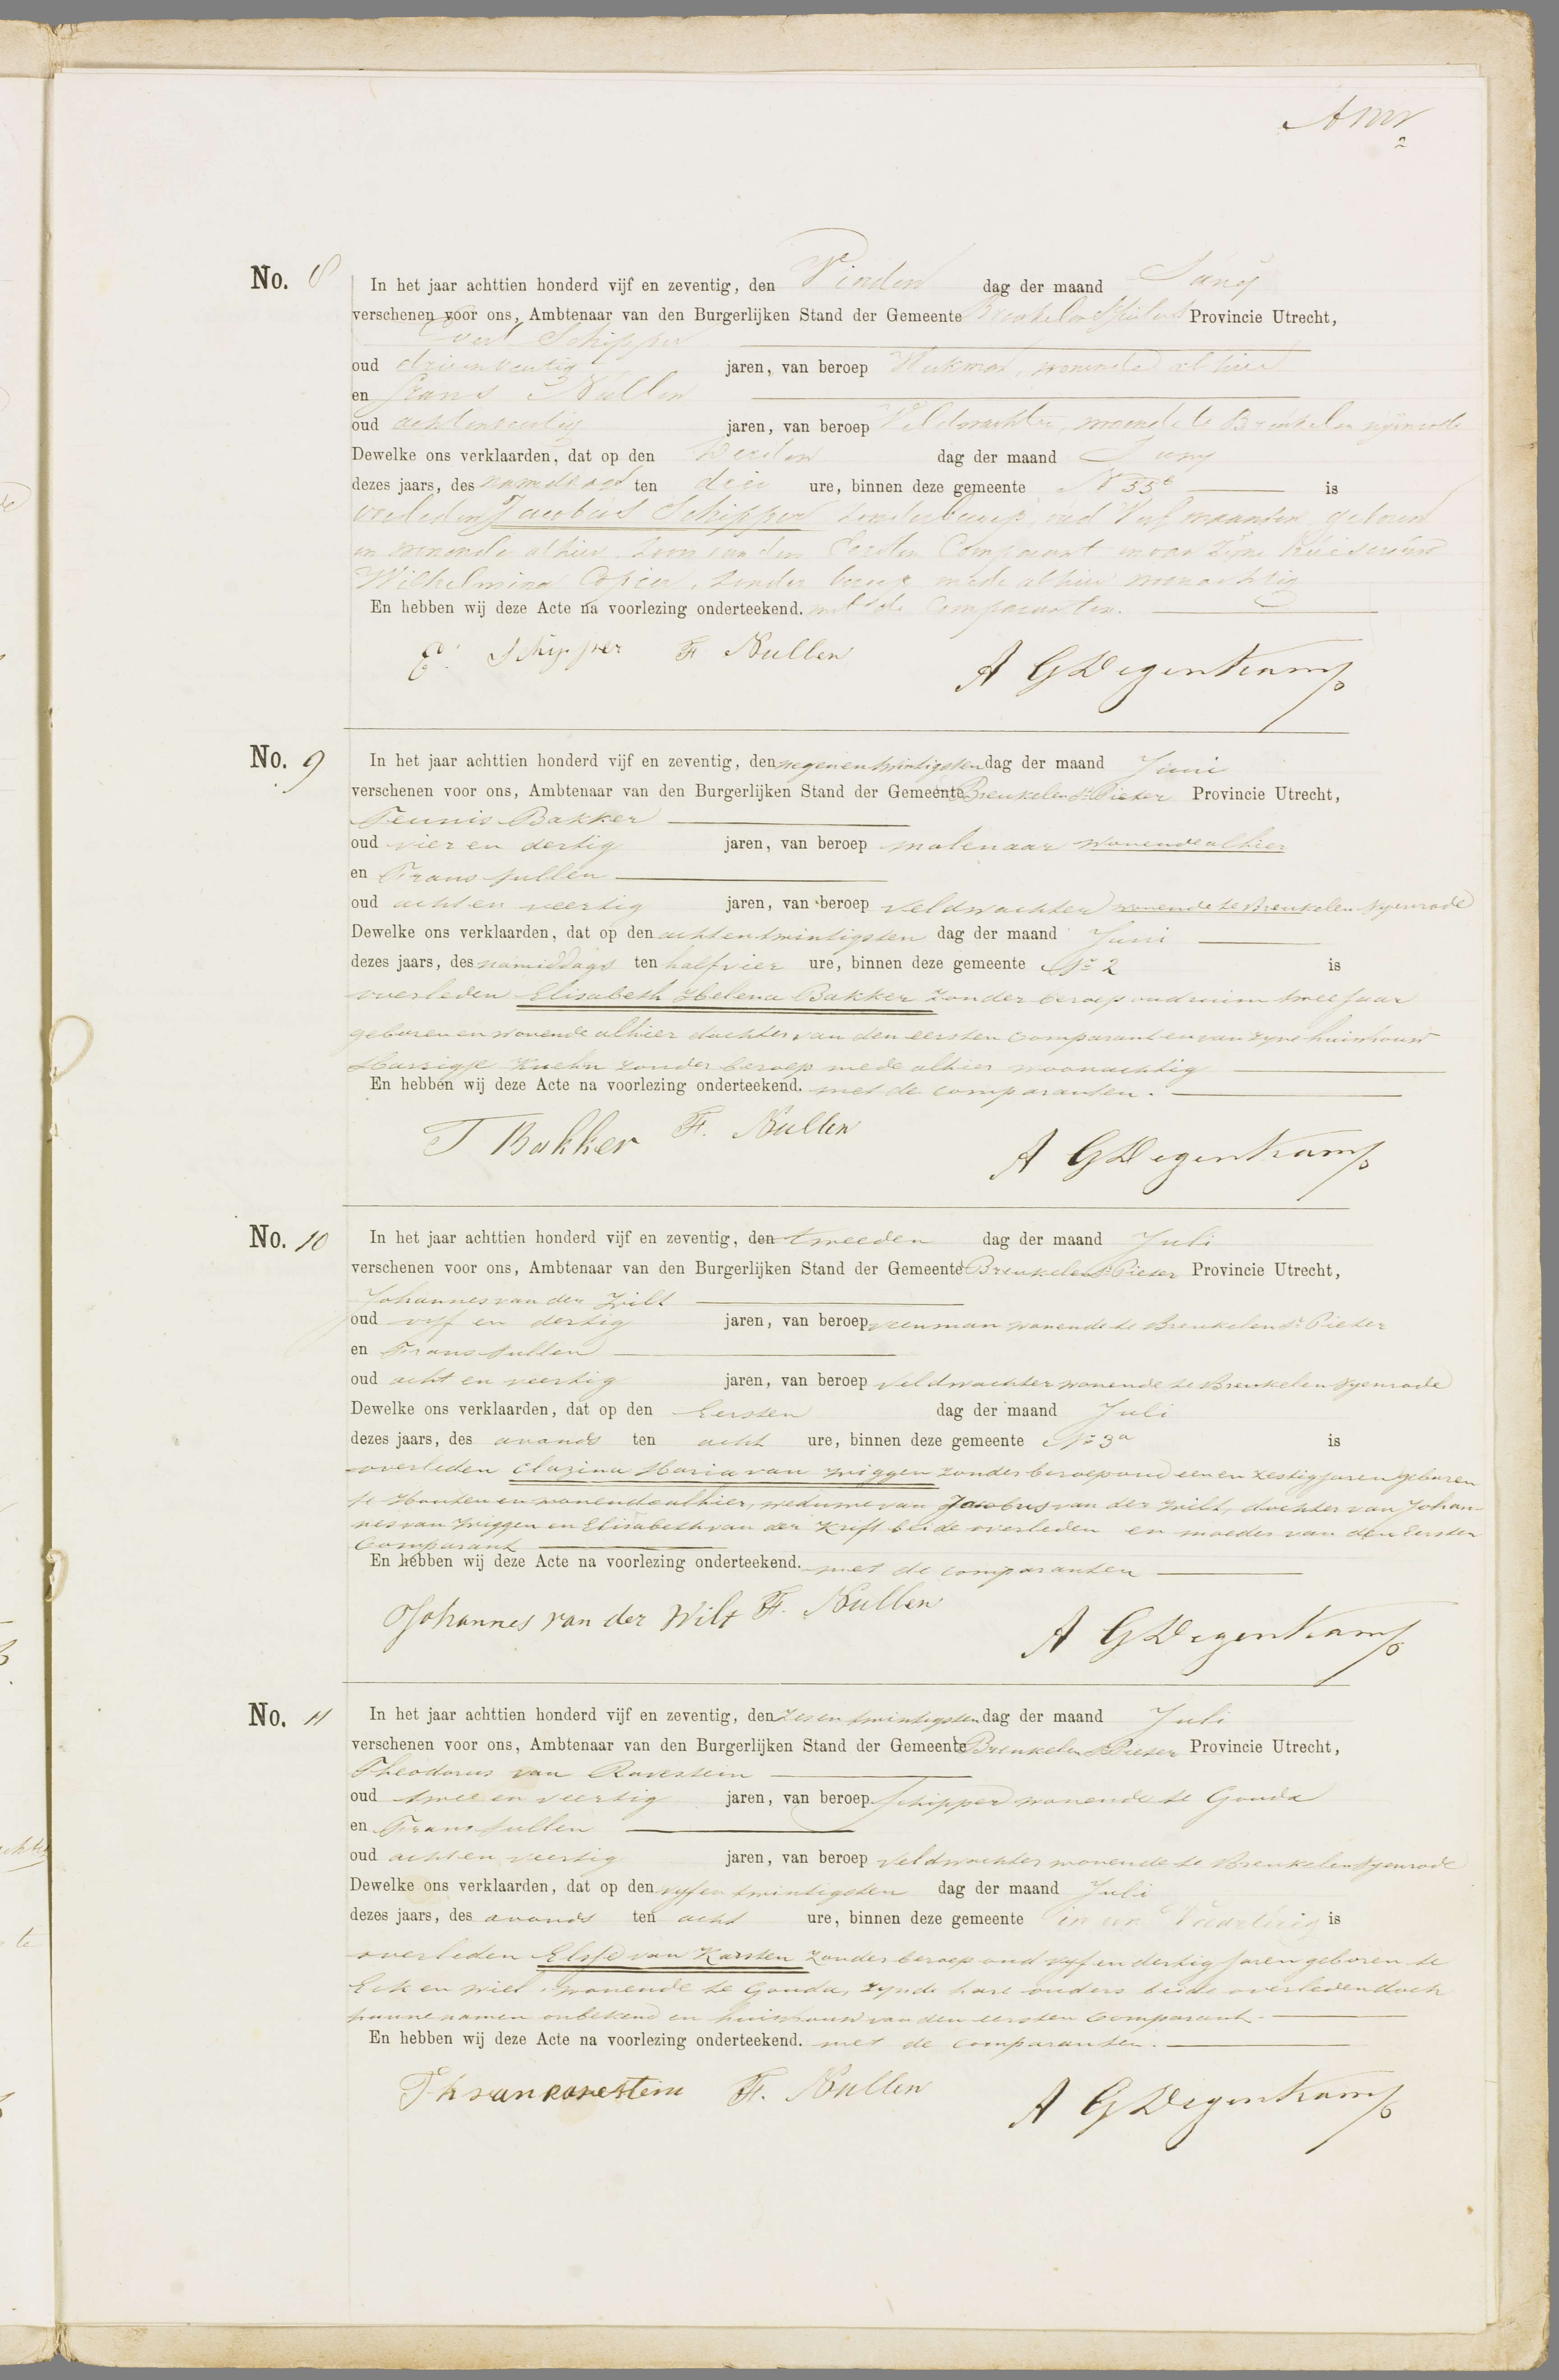 No. 8 In het jaar achttien honderd vijf en zeventig, den Vierden dag der maand Junij
verschenen voor ons, Ambtenaar van den Burgerlijken Stand der Gemeente Breukelen St Pieters Provincie Utrecht,
Evert Schipper
oud drieenveertig jaren, van beroep Werkman, wonende alhier
en Frans Nullen
oud achtenveertig jaren, van beroep Veldwachter, wonende te Breukelen nijenrode
Dewelke ons verklaarden, dat op den Derden dag der maand Junij
dezes jaars, des namiddags ten drie ure, binnen deze gemeente No 33b is
overleden Jacobus Schipper zonder beroep, oud Vijf maanden geboren
en wonende alhier, Zoon van den Eersten Comparant en van zijne Huisvrouw
Wilhelmina Copier, zonder beroep mede alhier woonachtig
En hebben wij deze Acte na voorlezing onderteekend. met de Comparanten.
E. Schipper F Nullen A G Degenkamp
No. 9 In het jaar achttien honderd vijf en zeventig, den negenentwintigsten dag der maand Juni
verschenen voor ons, Ambtenaar van den Burgerlijken Stand der Gemeente Breukelen St Pieter Provincie Utrecht,
Teunis Bakker
oud vier en dertig jaren, van beroep molenaar wonende alhier
en Frans Nullen
oud acht en veertig jaren, van beroep veldwachter wonende te Breukelen Nyenrode
Dewelke ons verklaarden, dat op den achtentwintigsten dag der maand Juni
dezes jaars, des namiddags ten half vier ure, binnen deze gemeente No 2 is
overleden Elisabeth Helena Bakker zonder beroep oud ruim twee jaar
geboren en wonende alhier dochter van den eersten comparant en van zyne huisvrouw
Marrigje Kuehn zonder beroep mede alhier woonachtig
En hebben wij deze Acte na voorlezing onderteekend. met de comparanten.
T Bakker F. Nullen A G Degenkamp
No. 10 In het jaar achttien honderd vijf en zeventig, den tweeden dag der maand Juli
verschenen voor ons, Ambtenaar van den Burgerlijken Stand der Gemeente Breukelen St Pieter Provincie Utrecht,
Johannes van der Wilt
oud vyf en dertig jaren, van beroep veenman wonende te Breukelen St Pieter
en Frans Nullen
oud acht en veertig jaren, van beroep veldwachter wonende te Breukelen Nyenrode
Dewelke ons verklaarden, dat op den Eersten dag der maand Juli
dezes jaars, des avonds ten acht ure, binnen deze gemeente No 3a is
overleden Clazina Maria van Wiggen zonder beroep oud een en zestig jaren geboren
te Houten en wonende alhier, weduwe van Jacobus van der Wilt, dochter van Johan-
nes van Wiggen en Elisabeth van der Krift beide overleden en moeder van den Eersten
Comparant
En hebben wij deze Acte na voorlezing onderteekend. met de comparanten
Johannes van der Wilt F. Nullen A G Degenkamp
No. 11 In het jaar achttien honderd vijf en zeventig, den zesentwintigsten dag der maand Juli
verschenen voor ons, Ambtenaar van den Burgerlijken Stand der Gemeente Breukelen St Pieter Provincie Utrecht,
Theodorus van Ravestein
oud twee en veertig jaren, van beroep Schipper wonende te Gouda
en Frans Nullen
oud acht en veertig jaren, van beroep veldwachter wonende te Breukelen Nyenrode
Dewelke ons verklaarden, dat op den vyfentwintigsten dag der maand Juli
dezes jaars, des avonds ten acht ure, binnen deze gemeente in een Vaartuig is
overleden Elsje van Karsten zonder beroep oud vyf en dertig jaren geboren te
Eck en Wiel, wonende te Gouda, zynde hare ouders beide overleden doch
hunne namen onbekend en huisvrouw van den eersten comparant.
En hebben wij deze Acte na voorlezing onderteekend. met de comparanten.
Th van Ravestein F. Nullen A G Degenkamp